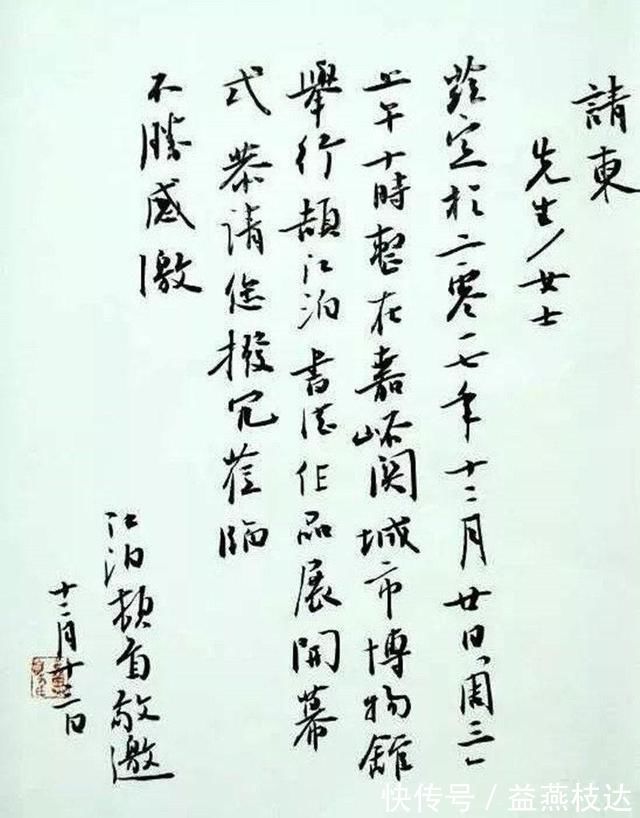 請柬
先生/女士
兹定於二零一七年十二月廿日(周三)
上午十時整在嘉峪関城市博物館
舉行頡江泊書法作品展開幕
式恭請您撥冗莅臨
不勝感激
江泊頓首敬邀
十二月十三日
快传号／益燕枝达